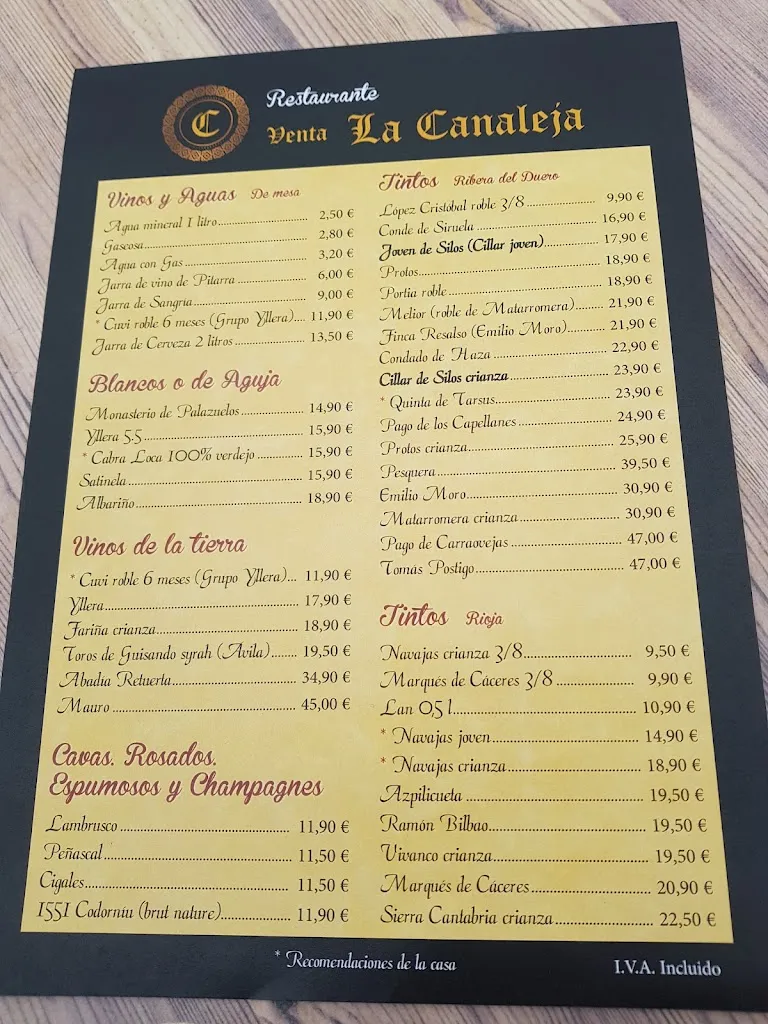 C
Restaurante
Venta La Canaleja
Vinos y Aguas De mesa
Agua mineral 1 litro 2,50 €
Gaseosa 2,80 €
Agua con Gas 3,20 €
Jarra de vino de Pitarra 6,00 €
Jarra de Sangría 9,00 €
* Cuvi roble 6 meses (Grupo Yllera) 11,90 €
Jarra de Cerveza 2 litros 13,50 €
Blancos o de Aguja
Monasterio de Palazuelos 14,90 €
Yllera 5.5 15,90 €
* Cabra Loca 100% verdejo 15,90 €
Satinela 15,90 €
Albariño 18,90 €
Vinos de la tierra
* Cuvi roble 6 meses (Grupo Yllera) 11,90 €
Yllera 17,90 €
Fariña crianza 18,90 €
Toros de Guisando syrah (Ávila) 19,50 €
Abadía Retuerta 34,90 €
Mauro 45,00 €
Cavas, Rosados,
Espumosos y Champagnes
Lambrusco 11,90 €
Peñascal 11,50 €
Cigales 11,50 €
1551 Codorníu (brut nature) 11,90 €
Tintos Ribera del Duero
López Cristóbal roble 3/8 9,90 €
Conde de Siruela 16,90 €
Joven de Silos (Cillar joven) 17,90 €
Protos 18,90 €
Portia roble 18,90 €
Melior (roble de Matarromera) 21,90 €
Finca Resalso (Emilio Moro) 21,90 €
Condado de Haza 22,90 €
Cillar de Silos crianza 23,90 €
* Quinta de Tarsus 23,90 €
Pago de los Capellanes 24,90 €
Protos crianza 25,90 €
Pesquera 39,50 €
Emilio Moro 30,90 €
Matarromera crianza 30,90 €
Pago de Carraovejas 47,00 €
Tomás Postigo 47,00 €
Tintos Rioja
Navajas crianza 3/8 9,50 €
Marqués de Cáceres 3/8 9,90 €
Lan 0,5 l. 10,90 €
* Navajas joven 14,90 €
* Navajas crianza 18,90 €
Azpilicueta 19,50 €
Ramón Bilbao 19,50 €
Vivanco crianza 19,50 €
Marqués de Cáceres 20,90 €
Sierra Cantabria crianza 22,50 €
* Recomendaciones de la casa
I.V.A. Incluido